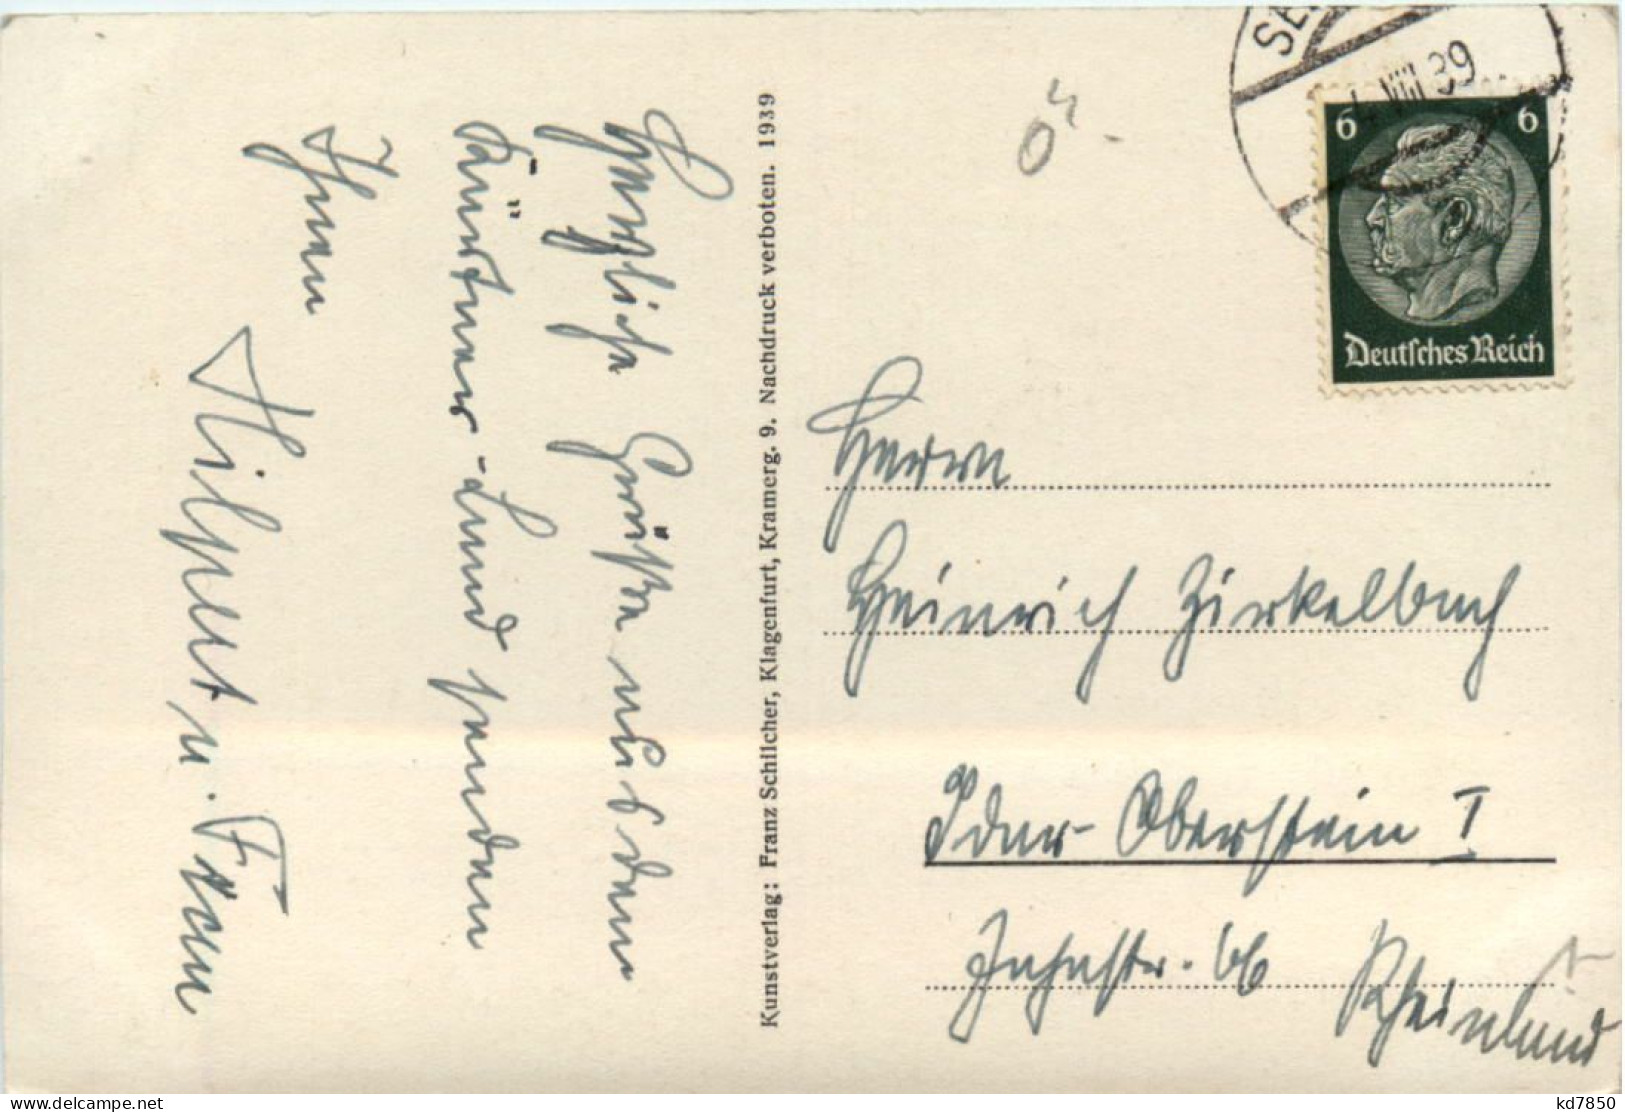 Herzliche Grüße aus dem
Kärntner-Land senden
Ihnen
Hilpert u. Frau
Kunstverlag: Franz Schilcher, Klagenfurt, Kramerg. 9. Nachdruck verboten. 1939
Ö
VIII 39
6 6
Deutsches Reich
Herrn
Heinrich Zirkelbach
Idar-Oberstein I
66
Rheinland
kd7850